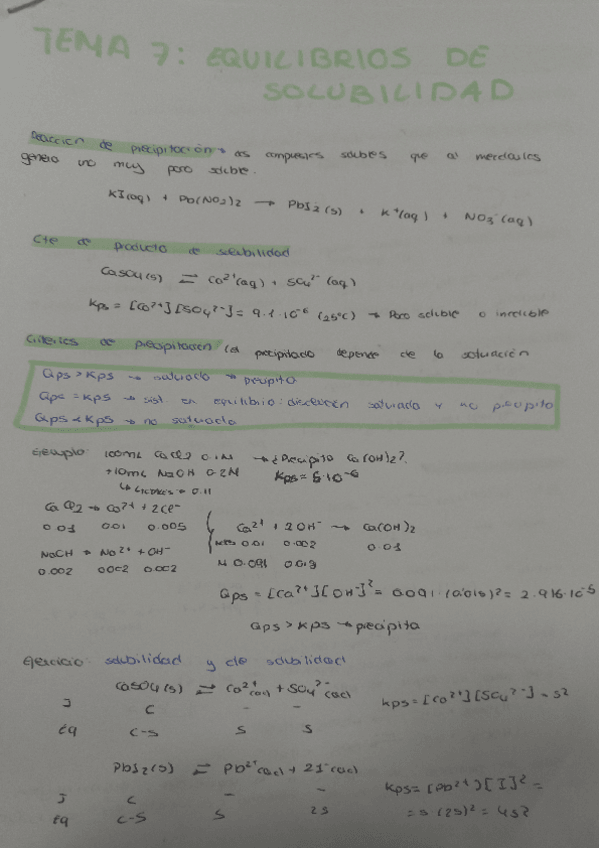 TEMA 7: EQUILIBRIOS DE
SOLUBILIDAD
Reacción de precipitación → dos compuestos solubles que al mezclarlos
genera uno muy poco soluble.
KI(aq) + Pb(NO3)2 → PbI2(s) + K+(aq) + NO3-(aq)
Cte de producto de solubilidad
CaSO4(s) ⇌ Ca2+(aq) + SO42-(aq)
Kps = [Ca2+][SO42-] = 9.1·10-6 (25ºC) → Poco soluble o insoluble
Criterios de precipitación (el precipitado depende de la solución
Qps > Kps → saturado → precipita
Qps = Kps → sist. en equilibrio: disolución saturada y no precipita
Qps < Kps → no saturado
Ejemplo: 100mL CaCl2 0.1M → ¿Precipita Ca(OH)2?
+10mL NaOH 0.2M Kps = 8·10-6
0.11
CaCl2 → Ca2+ + 2Cl-
0.01 0.01 0.005
Ca2+ + 2OH- → Ca(OH)2
0.01 0.002 0.01
NaOH → Na+ + OH-
0.002 0.002 0.002
M 0.091 0.018
Qps = [Ca2+][OH-]2 = 0.091·(0.018)2 = 2.948·10-5
Qps > Kps → precipita
Ejercicio: solubilidad y cte solubilidad
CaSO4(s) ⇌ Ca2+(aq) + SO42-(ac)
Kps = [Ca2+][SO42-] = s2
I C - -
Eq C-S S S
PbI2(s) ⇌ Pb2+(ac) + 2I-(ac)
Kps = [Pb2+][I]2 =
I C - -
= s(2s)2 = 4s2
Eq C-S S 2S